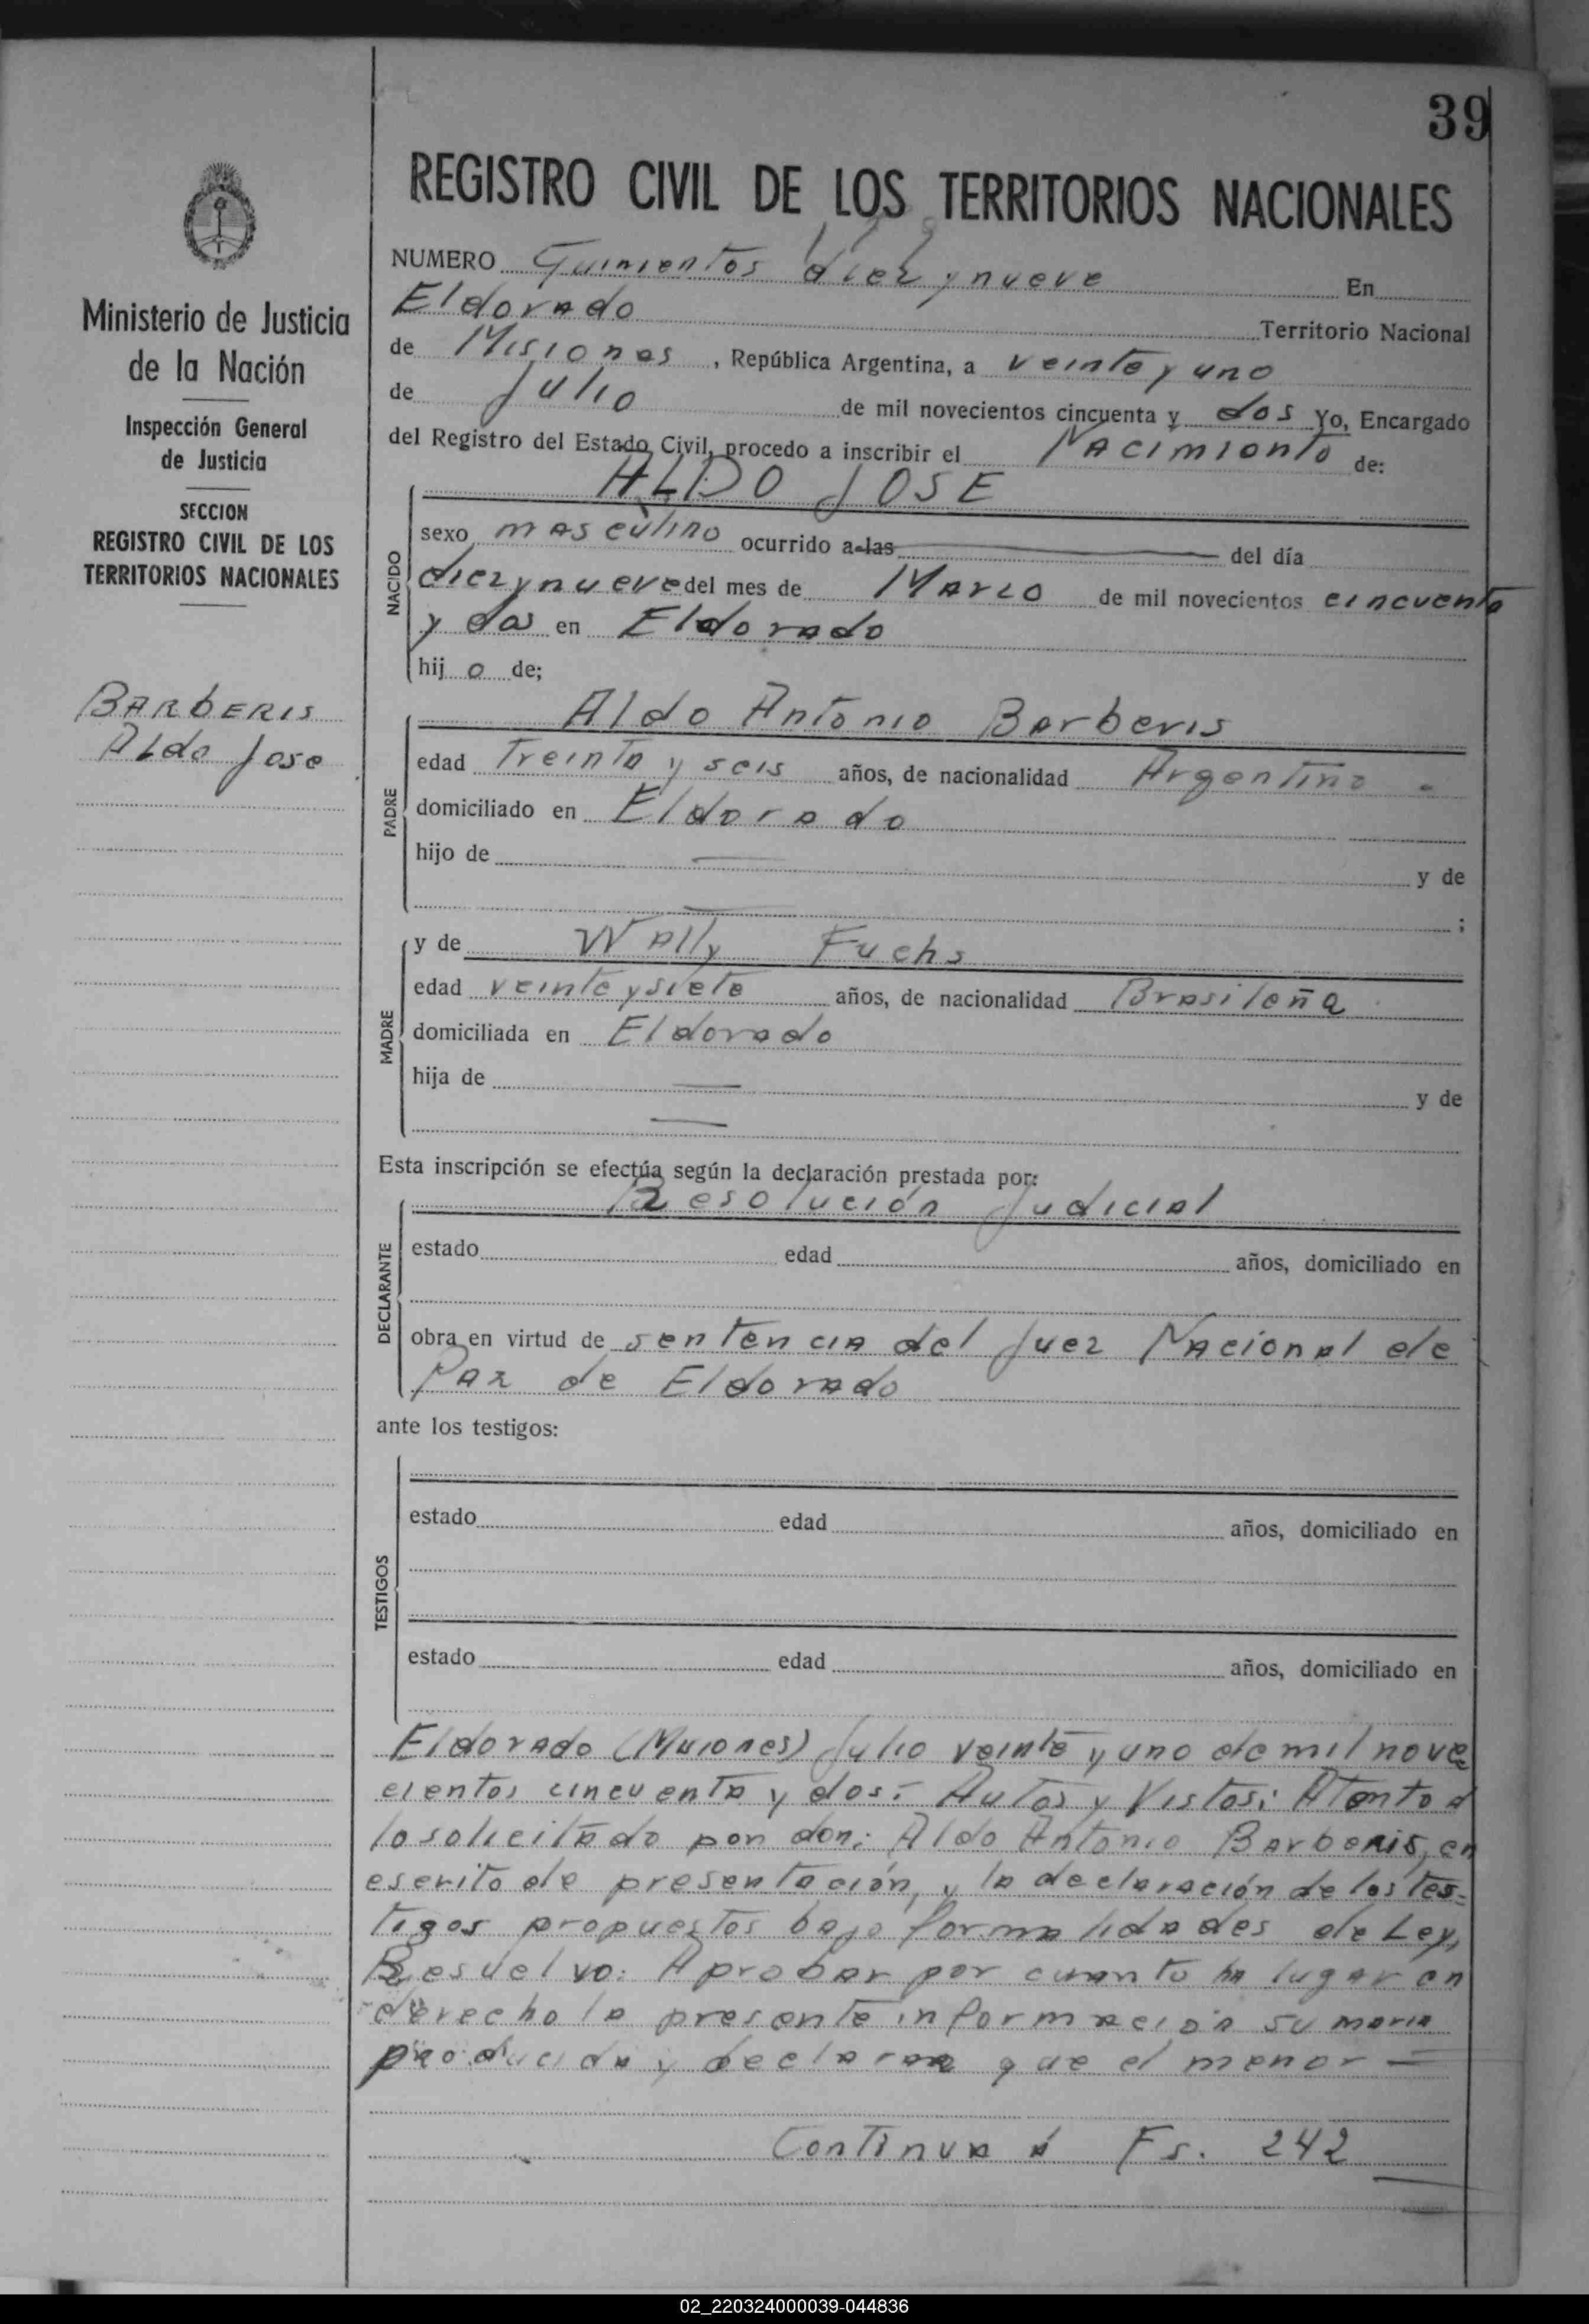 39
REGISTRO CIVIL DE LOS TERRITORIOS NACIONALES
Ministerio de Justicia
de la Nación
Inspección General
de Justicia
SECCION
REGISTRO CIVIL DE LOS
TERRITORIOS NACIONALES
BARBERIS
Aldo Jose
NUMERO Quinientos diez y nueve En
Eldorado Territorio Nacional
de Misiones, República Argentina, a veinte y uno
de Julio de mil novecientos cincuenta y dos Yo, Encargado
del Registro del Estado Civil, procedo a inscribir el Nacimiento de:
ALDO JOSE
NACIDO
sexo masculino ocurrido a las del día
diez y nueve del mes de Marzo de mil novecientos cincuenta
y dos en Eldorado
hijo de;
Aldo Antonio Barberis
PADRE
edad Treinta y seis años, de nacionalidad Argentino -
domiciliado en Eldorado
hijo de — y de
— ;
y de Wally Fuchs
MADRE
edad veinte y siete años, de nacionalidad Brasileña
domiciliada en Eldorado
hija de — y de
—
Esta inscripción se efectúa según la declaración prestada por:
Resolución Judicial
DECLARANTE
estado edad años, domiciliado en
obra en virtud de sentencia del Juez Nacional de
Paz de Eldorado
ante los testigos:
TESTIGOS
estado edad años, domiciliado en
estado edad años, domiciliado en
Eldorado (Misiones) Julio veinte y uno de mil nove
cientos cincuenta y dos.- Autos y Vistos: Atento a
lo solicitado por don: Aldo Antonio Barberis, en
escrito de presentación, y la declaración de los tes=
tigos propuestos bajo formalidades de Ley,
Resuelvo: Aprobar por cuanto ha lugar en
derecho la presente información sumaria
producida y declarar que el menor =
Continua á Fs. 242
02_220324000039-044836